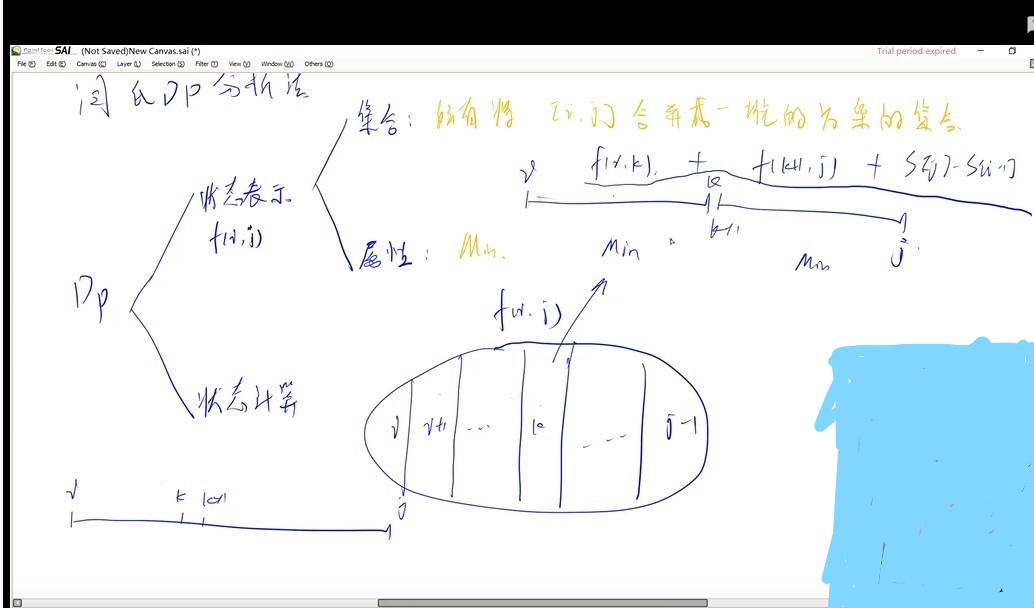 PaintTool SAI (Not Saved)New Canvas.sai (*)
Trial period expired
File (F) Edit (E) Canvas (C) Layer (L) Selection (S) Filter (T) View (V) Window (W) Others (O)
闫氏DP分析法
集合: 所有将 [i,j] 合并成一堆的方案的集合
f(i,k) + f(k+1,j) + S[j]-S[i-1]
i k k+1 j
状态表示
f(i,j)
属性: Min.
Min
Min
DP
f(i,j)
状态计算
i i+1 ... k ... j-1
i k k+1 j